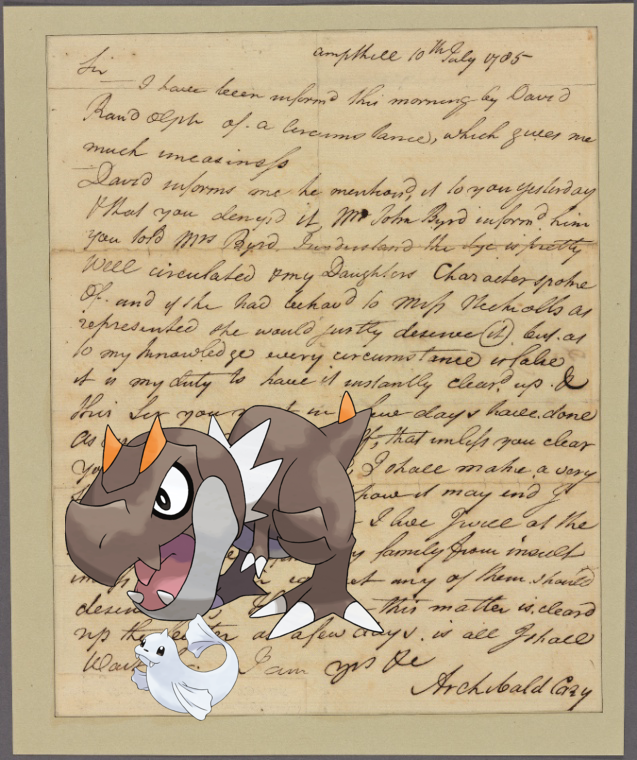 ampthill 10th July 1785
Sir
I have been inform'd this morning by David
Randolph of a Circumstance, which gives me
much uneasiness
David informs me he mentiond it to you yesterday
& that you denyd it, Mr John Byrd inform'd him
you told Mrs Byrd. I understand the lye is pretty
well circulated & my Daughters Character spoke
of. and if she had behav'd to Miss Nicholls as
represented she would justly deserve it, but as
to my knowledge every circumstance is false
it is my duty to have it instantly clear'd up. &
this Sir you in few days have done
as that unless you clear
I shall make a very
how it may end I
I live I will at the
family from insult
any of them should
this matter is cleard
up the as a few days. is all I shall
I am yrs &c
Archibald Cary